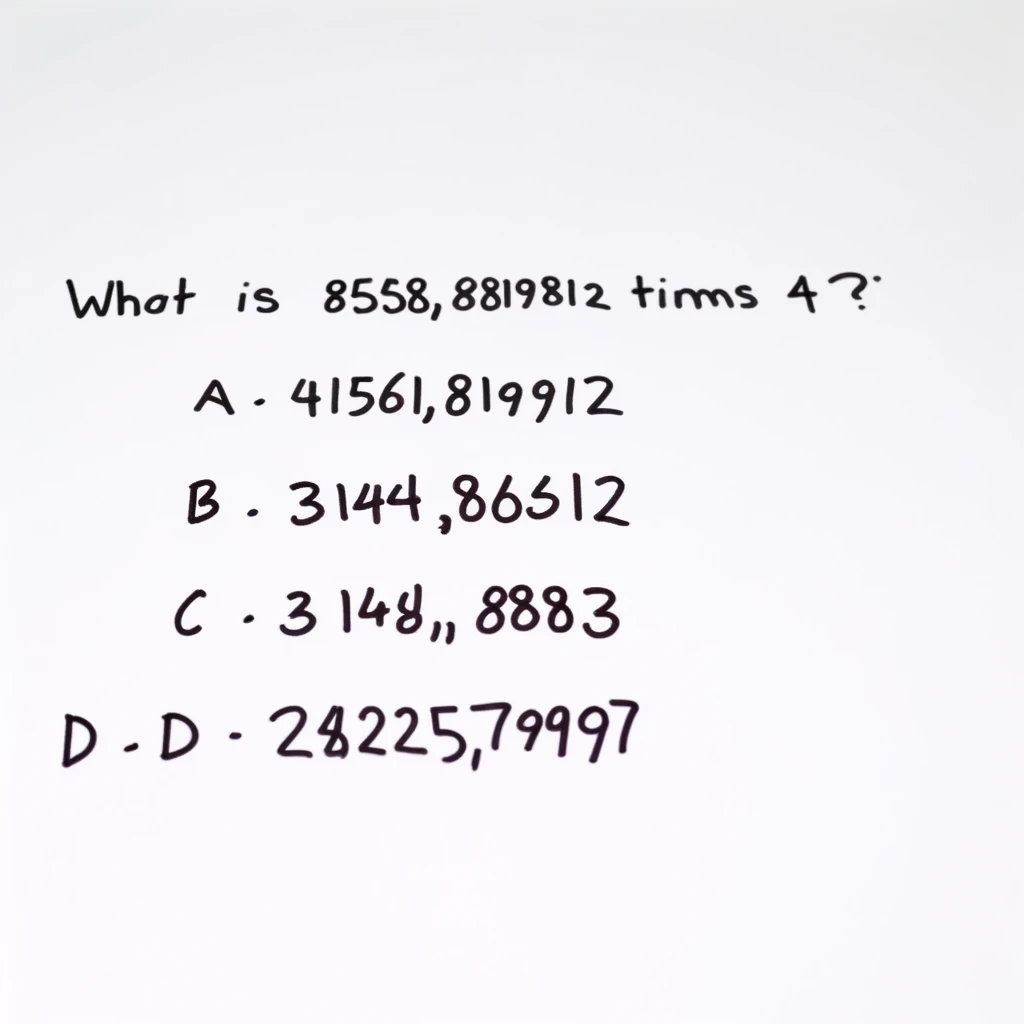 What is 8558,8819812 timms 4?
A. 41561,819912
B. 3144,86512
C. 3148,, 8883
D. D. 28225,79997